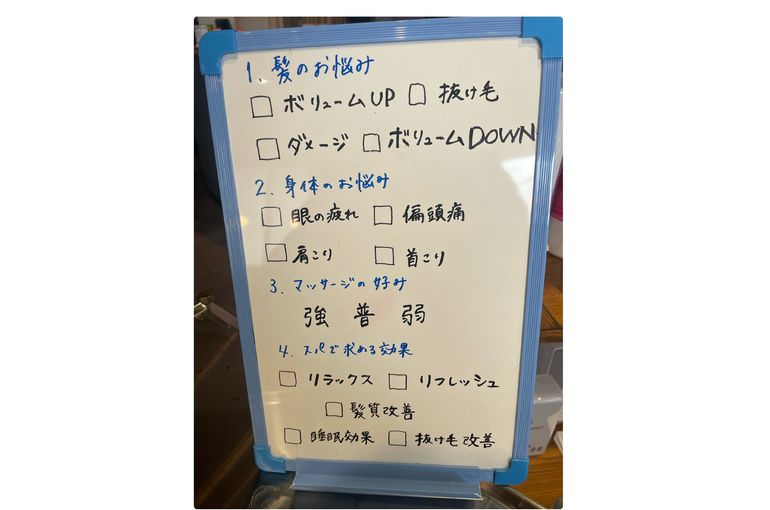 1. 髪のお悩み
□ ボリュームUP □ 抜け毛
□ ダメージ □ ボリュームDOWN
2. 身体のお悩み
□ 眼の疲れ □ 偏頭痛
□ 肩こり □ 首こり
3. マッサージの好み
強 普 弱
4. スパで求める効果
□ リラックス □ リフレッシュ
□ 髪質改善
□ 睡眠効果 □ 抜け毛改善